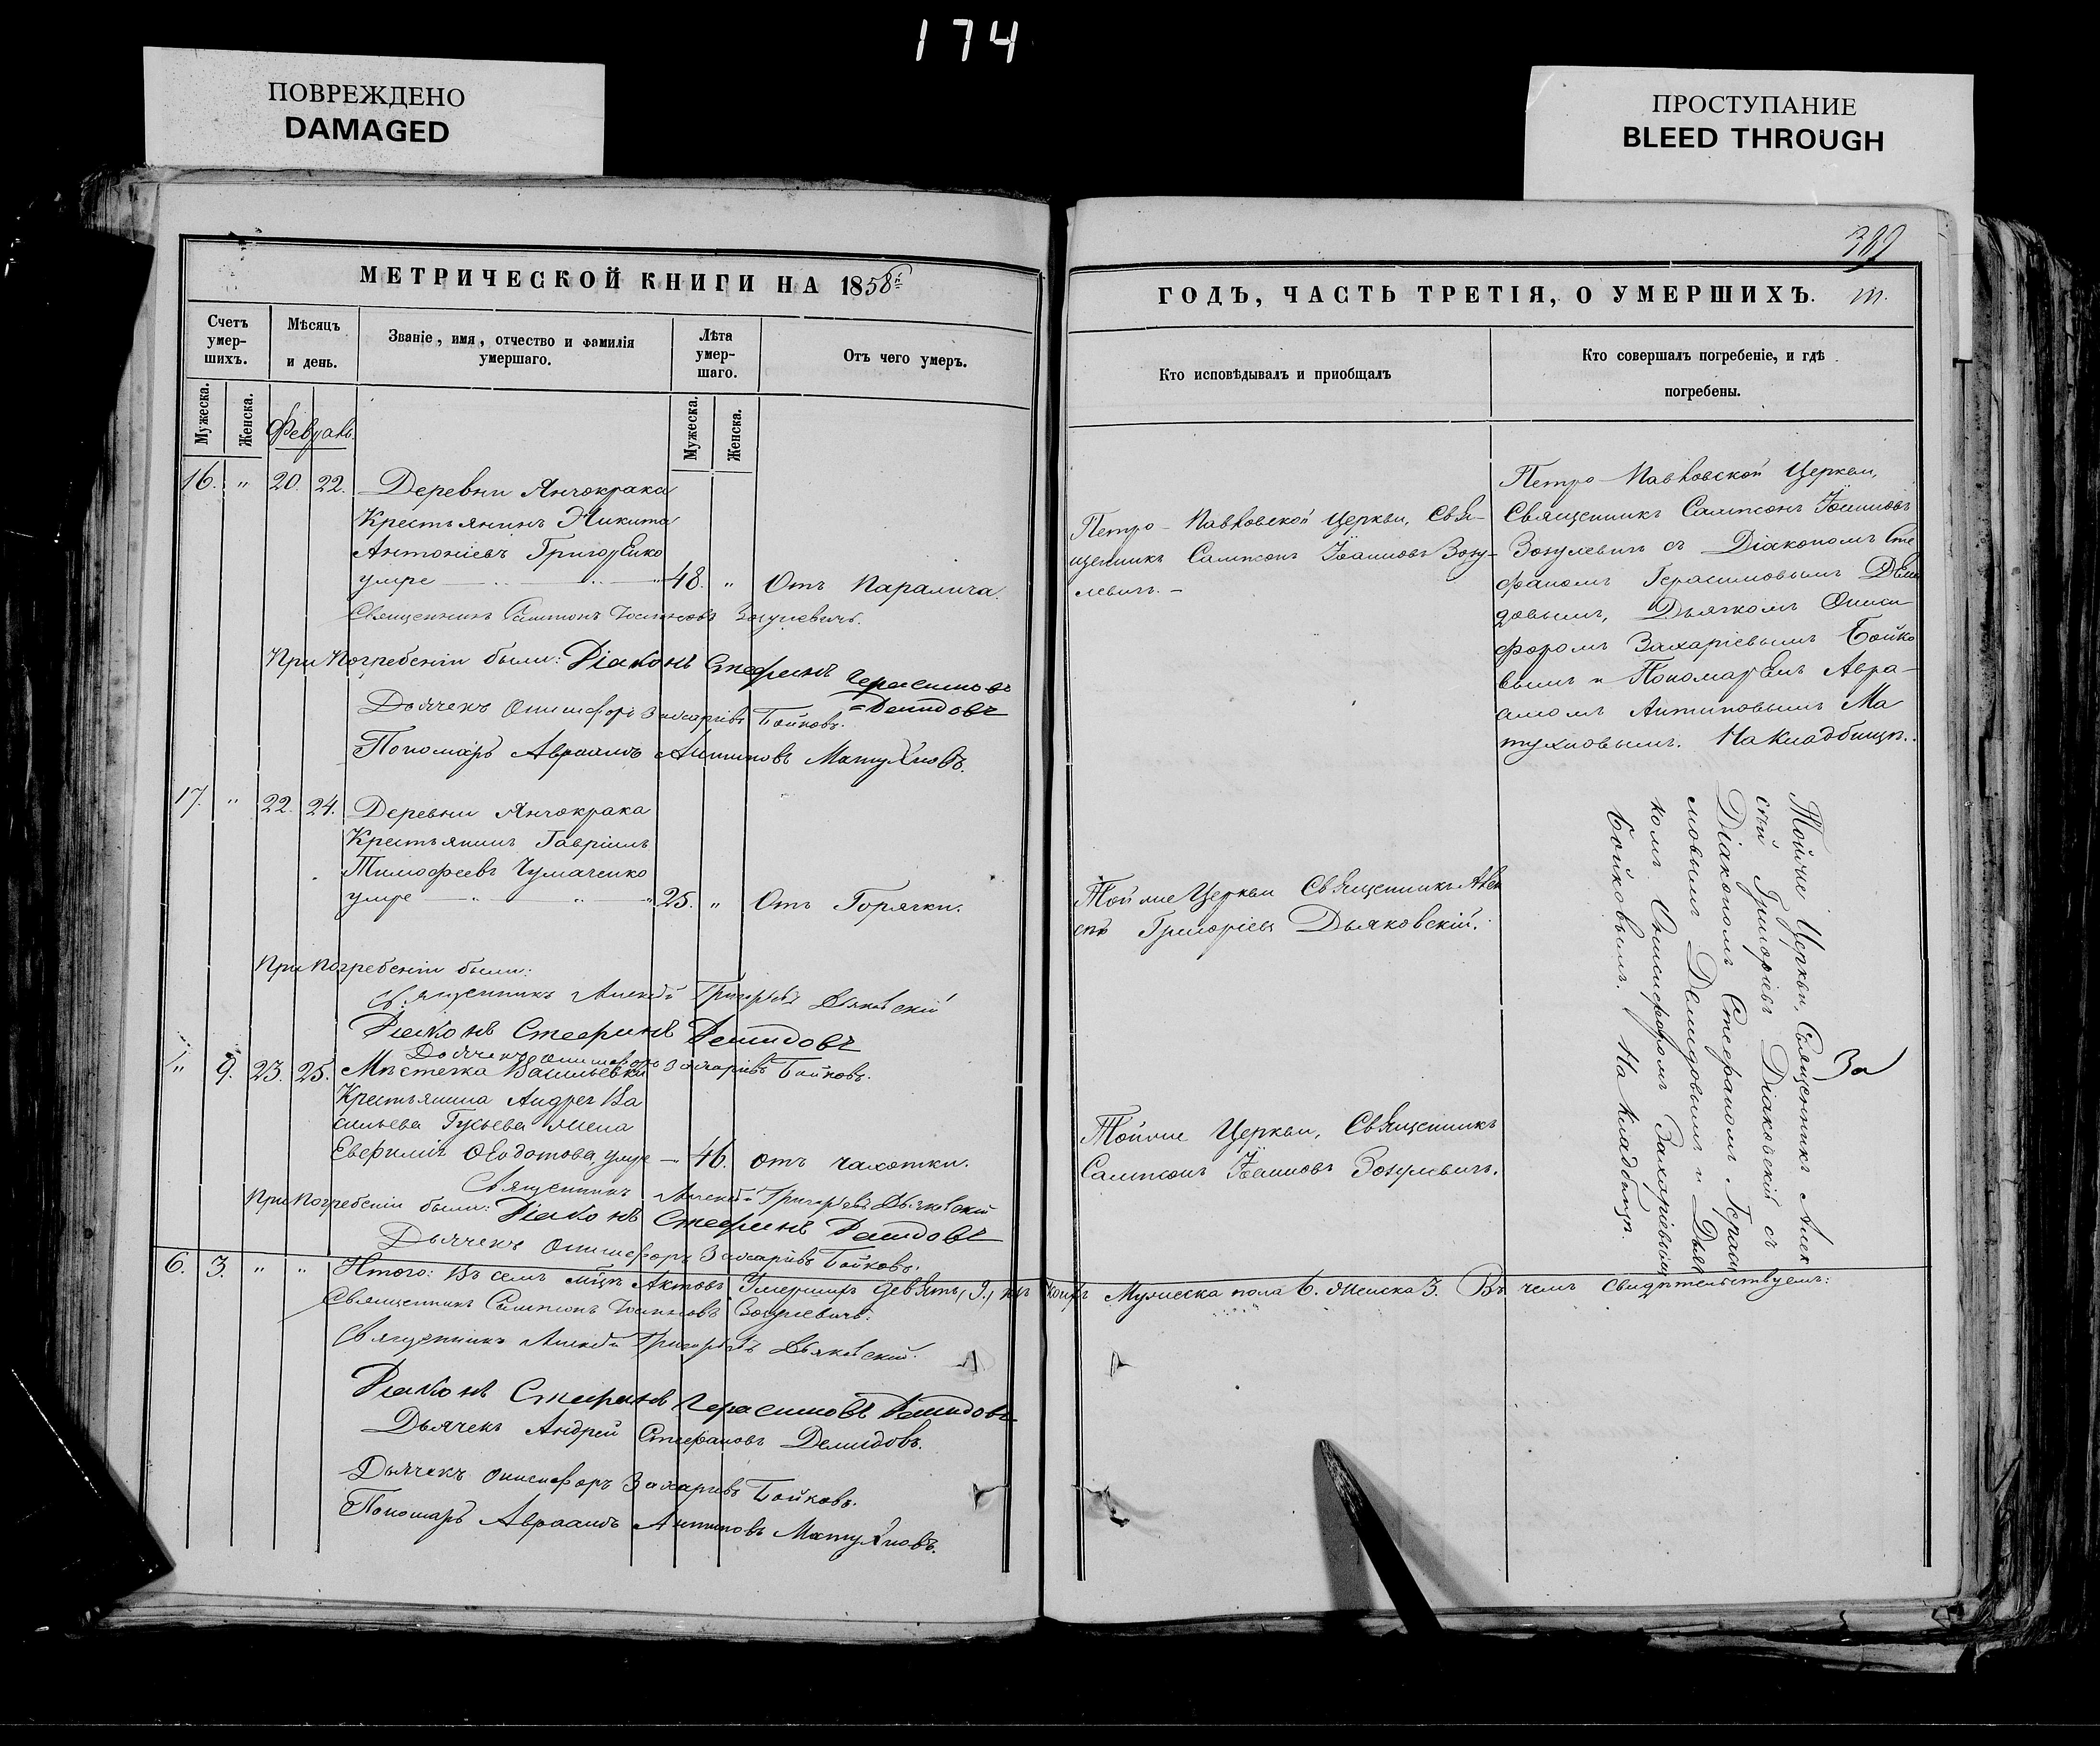 174
ПОВРЕЖДЕНО
DAMAGED
ПРОСТУПАНИЕ
BLEED THROUGH
МЕТРИЧЕСКОЙ КНИГИ НА 1858й
Счетъ умер-шихъ.
Мужеска.
Женска.
Мѣсяцъ и день.
Званіе, имя, отчество и фамилія умершаго.
Лѣта умер-шаго.
Мужеска.
Женска.
Отъ чего умеръ.
16. " 20. 22. Деревни Янчокрака
Крестьянинъ Никита
Антоніевъ Григоренко
умре 48. " Отъ Паралича.
Священникъ Сампсонъ Іоанновъ Зозулевичъ.
При погребеніи были: Діаконъ Стефанъ Герасимовъ
Демидовъ
Дьячекъ Онисифоръ Захаріевъ Бойковъ.
Пономарь Авраамъ Антиповъ Матухновъ.
17. " 22. 24. Деревни Янчокрака
Крестьянинъ Гавріилъ
Тимофеевъ Чумаченко
умре 25. " Отъ Горячки.
При погребеніи были:
Священникъ Алексѣй Григорьевъ Дьяковскій
Діаконъ Стефанъ Демидовъ
Дьячекъ Онисифоръ Захаріевъ Бойковъ.
" 9. 23. 25. Мѣстечка Васильевки
Крестьянина Андрея Ва
сильева Гусьева жена
Евфимія Ѳеодотова умре 46. отъ чахотки.
Священникъ Алексѣй Григорьевъ Дьяковскій
При погребеніи были: Діаконъ Стефанъ Демидовъ
Дьячекъ Онисифоръ Захаріевъ Бойковъ.
6. 3. " " Итого: Въ семъ мцѣ Актовъ Умершихъ девять, 9, изъ коихъ Мужеска пола 6. Женска 3. Въ чемъ свидѣтельствуемъ:
Священникъ Сампсонъ Іоанновъ Зозулевичъ.
Священникъ Алексѣй Григорьевъ Дьяковскій.
Діаконъ Стефанъ Герасимовъ Демидовъ
Дьячекъ Андрей Стефановъ Демидовъ.
Дьячекъ Онисифоръ Захаріевъ Бойковъ.
Пономарь Авраамъ Антиповъ Матухновъ.
ГОДЪ, ЧАСТЬ ТРЕТІЯ, О УМЕРШИХЪ.
Кто исповѣдывалъ и пріобщалъ
Кто совершалъ погребеніе, и гдѣ
погребены.
Петро-Павловской Церкви, Свя-
щенникъ Сампсонъ Іоанновъ Зозу-
левичъ.
Петро-Павловской Церкви,
Священникъ Сампсонъ Іоанновъ
Зозулевичъ съ Діакономъ Сте
фаномъ Герасимовымъ Деми
довымъ, Дьячкомъ Ониси
форомъ Захаріевымъ Бойко
вымъ и Пономаремъ Авра-
амомъ Антиповымъ Ма
тухновымъ. На кладбищѣ.
Той же Церкви Священникъ Алек
сѣй Григоріевъ Дьяковскій.
Той же Церкви, Священникъ
Сампсонъ Іоанновъ Зозулевичъ.
Той же Церкви, Священникъ Алек
сѣй Григоріевъ Дьяковскій съ
Діакономъ Стефаномъ Гераси
мовымъ Демидовымъ и Дьяч
комъ Онисифоромъ Захаріевымъ
Бойковымъ. На кладбищѣ.